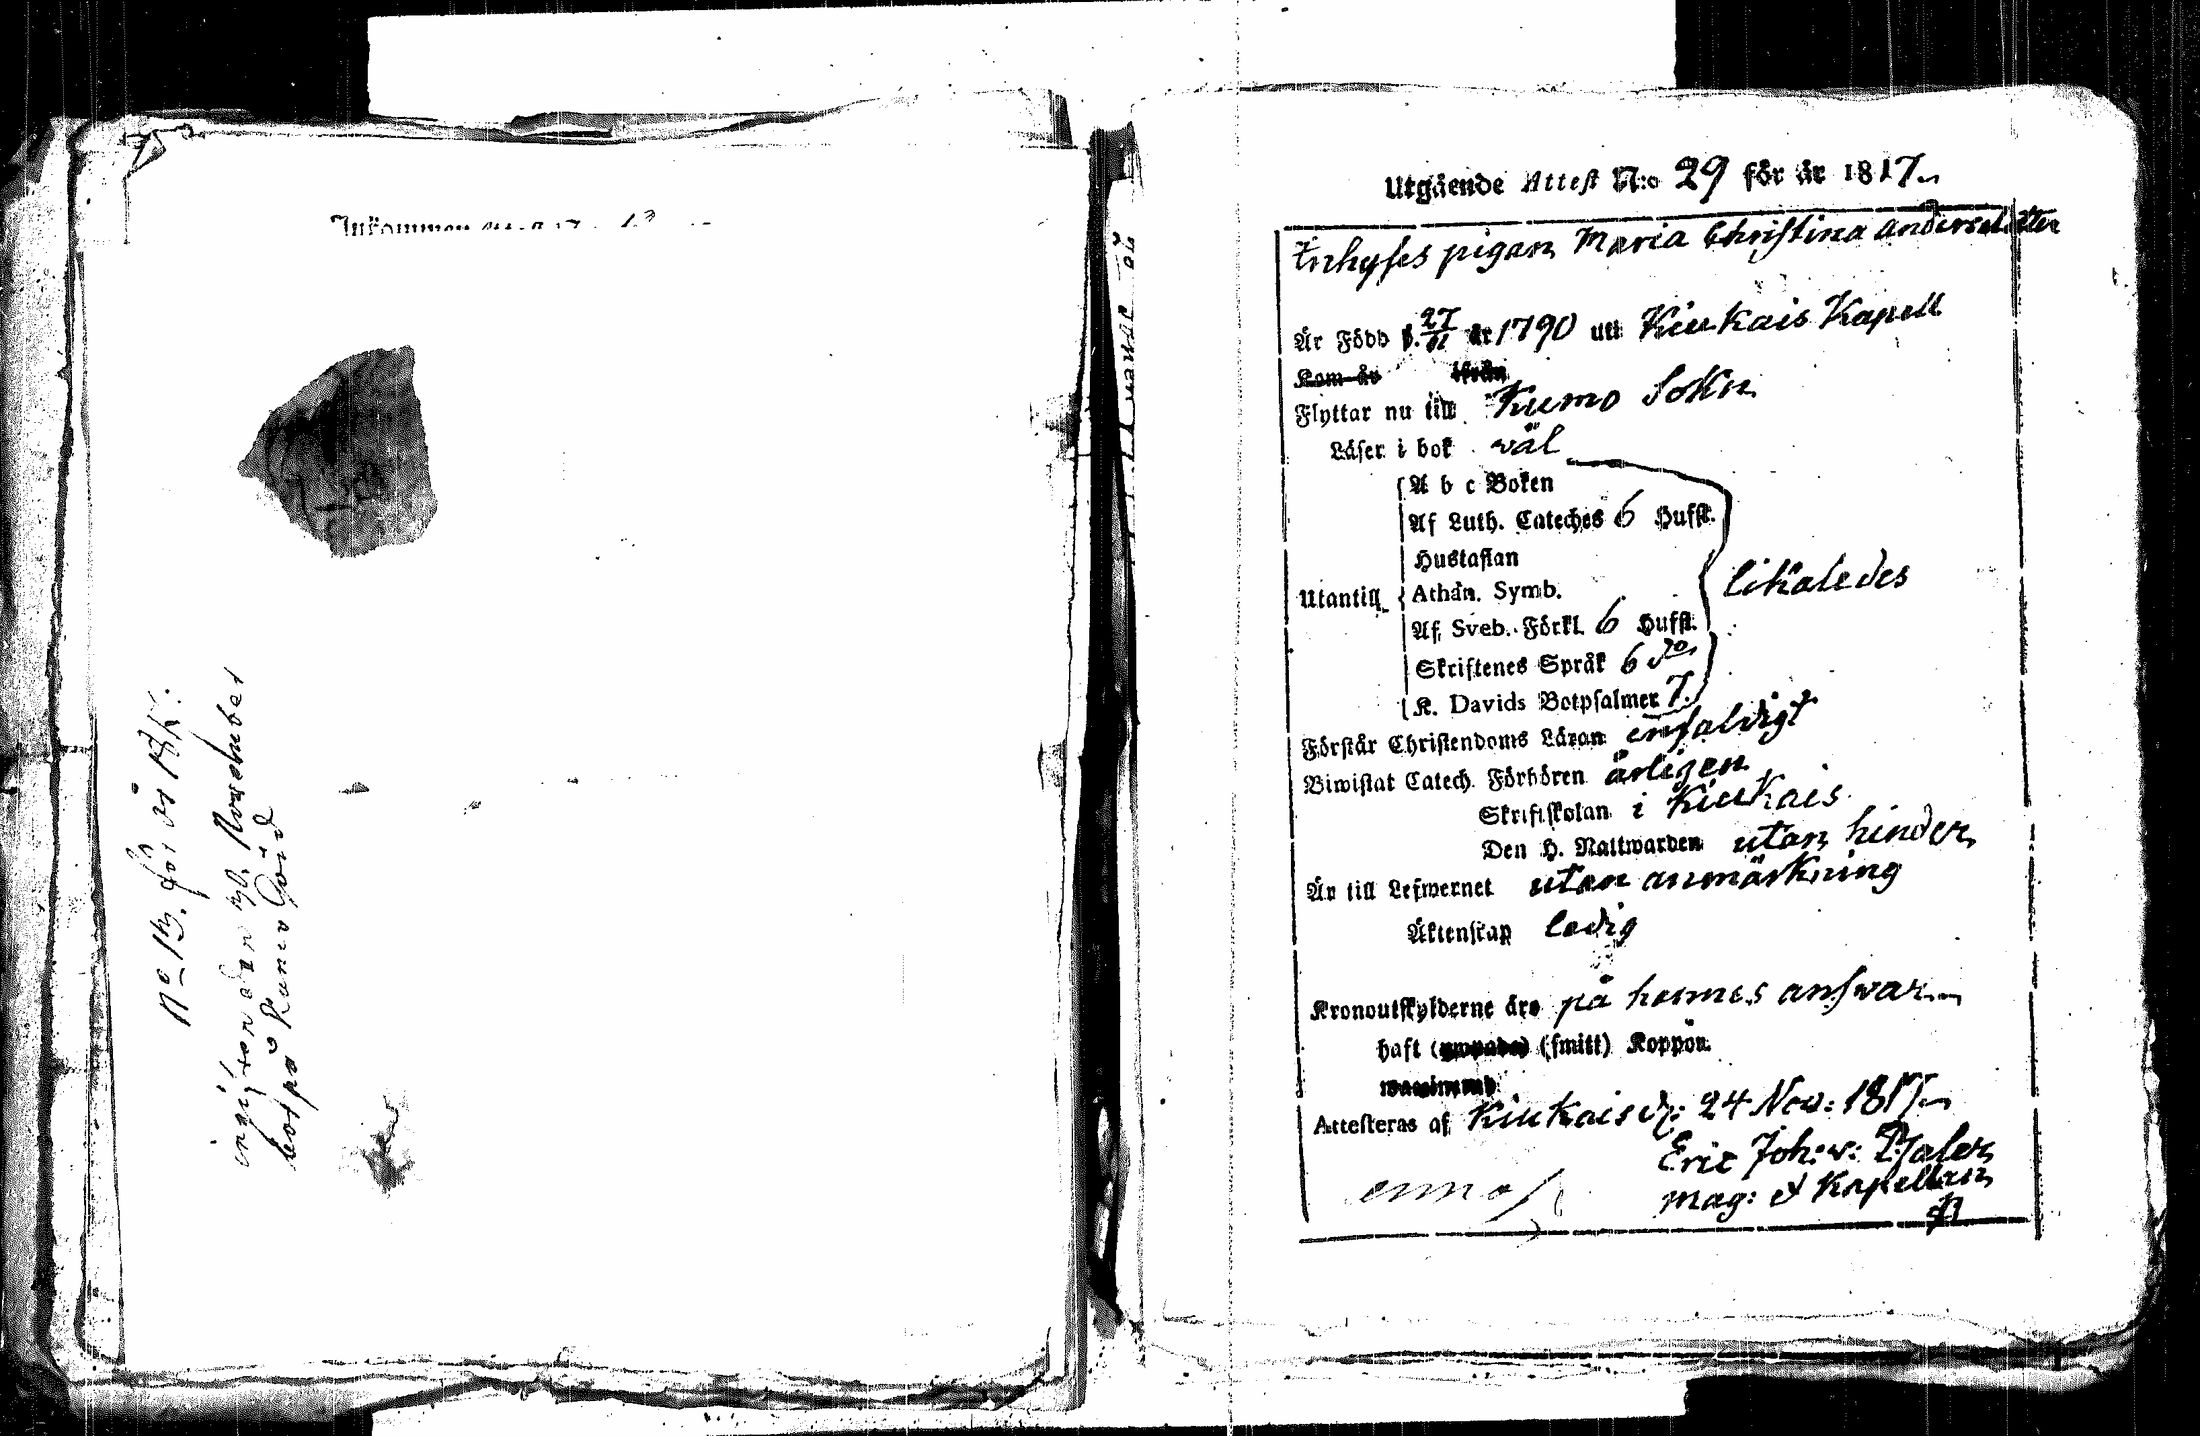 No 13. för år 1817.
den 30. November
på Kumo Gård
Utgående Attest N:o 29 för år 1817.
Inhyses pigan Maria Christina Andersdotter
Är Född d. 27/11 år 1790 uti Kiukais Kapell
Kom år ifrån
Flyttar nu till Kumo Sokn
Läser i bok wäl
A b c Boken
Af Luth. Cateches 6 Hufst.
Hustaflan
Utantill Athan. Symb. likaledes
Af Sveb. Förkl. 6 Hufst.
Skriftenes Språk 6 do
K. Davids Botpsalmer 7.
Förstår Christendoms Läran enfaldigt
Biwistat Catech. Förhören årligen
Skriftskolan i Kiukais
Den H. Nattwarden utan hinder
Är till Lefwernet utan anmärkning
Äktenskap ledig
Kronoutskylderne äro på hennes answar
haft (smitt) Koppor.
Attesteras af Kiukais d: 24 Nov: 1817
Eric Joh: v: Pfaler
Mag: & Kapellan